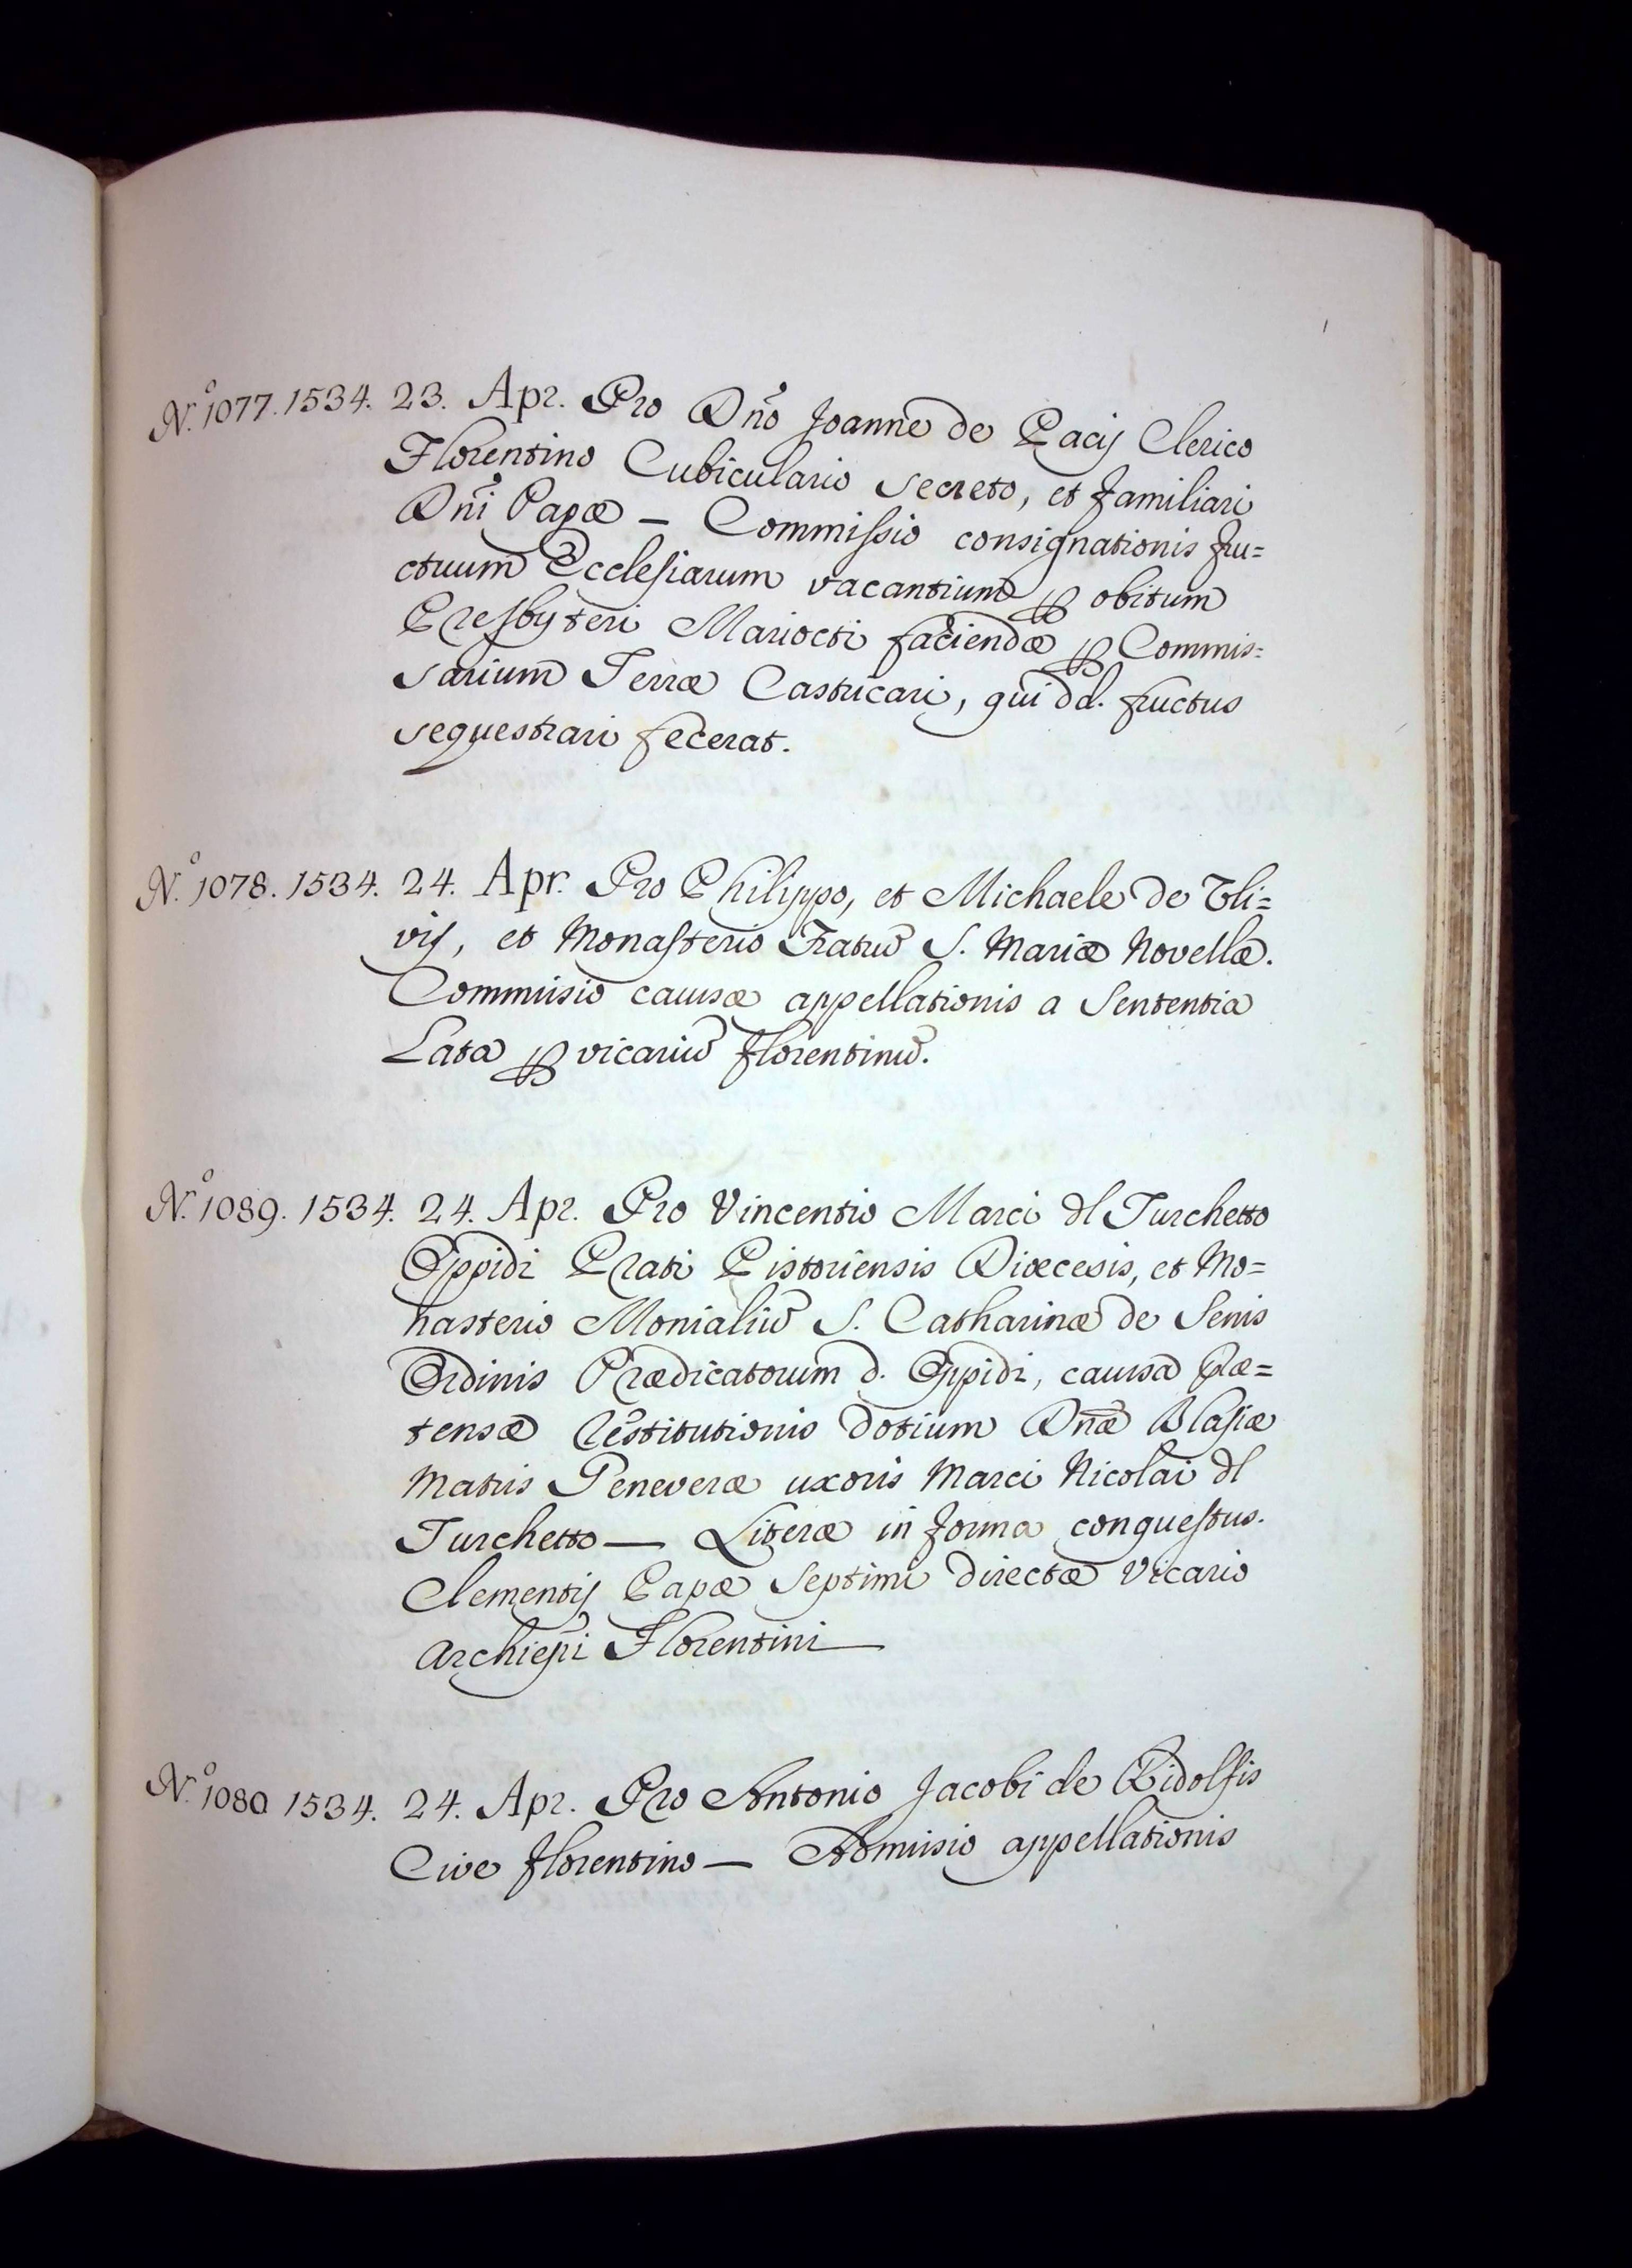 N.º 1077. 1534. 23. Apr. Pro Dño Joanne de Pacij Clerico
Florentino Cubiculario secreto, et familiari
Dñi Papæ — Commissio consignationis fru=
ctuum Ecclesiarum vacantium ꝑ obitum
Presbyteri Mariocti faciendæ ꝑ Commis=
sarium Terræ Castricari, qui dd. fructus
sequestrari fecerat.
N.º 1078. 1534. 24. Apr. Pro Philippo, et Michaele de Oli=
vis, et Monasterio Fratrũ S. Mariæ Novellæ.
Commisio causæ appellationis a Sententia
Lata ꝑ vicariũ florentinũ.
N.º 1089. 1534. 24. Apr. Pro Vincentio Marci dl Turchetto
Oppidi Prati Pistoriensis Diœcesis, et Mo=
nasterio Monialiũ S. Catharinæ de Senis
Ordinis Prædicatorum d. Oppidi, causa Præ=
tensæ Restitutionis dotium Dnæ Blasiæ
Matris Peneveræ uxoris Marci Nicolai dl
Turchetto — Literæ in forma conquestus.
Clementij Papæ Septimi directæ Vicario
Archiepi Florentini —
N.º 1080 1534. 24. Apr. Pro Antonio Jacobi de Ridolfis
Cive florentino — Admisio appellationis